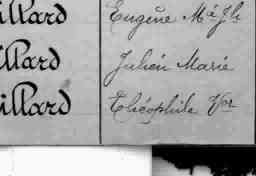 illard Eugène M
illard Julien Marie
illard Théophile Vor